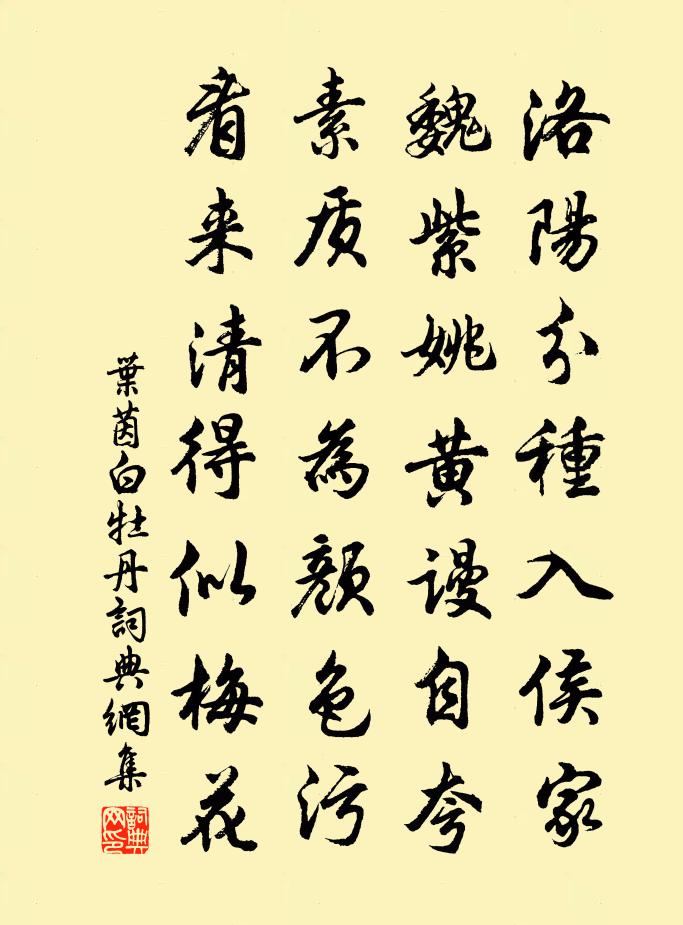 洛陽分種入侯家
魏紫姚黄謾自夸
素质不為顔色污
看来清得似梅花
葉茵白牡丹詞典網集
詞典网印